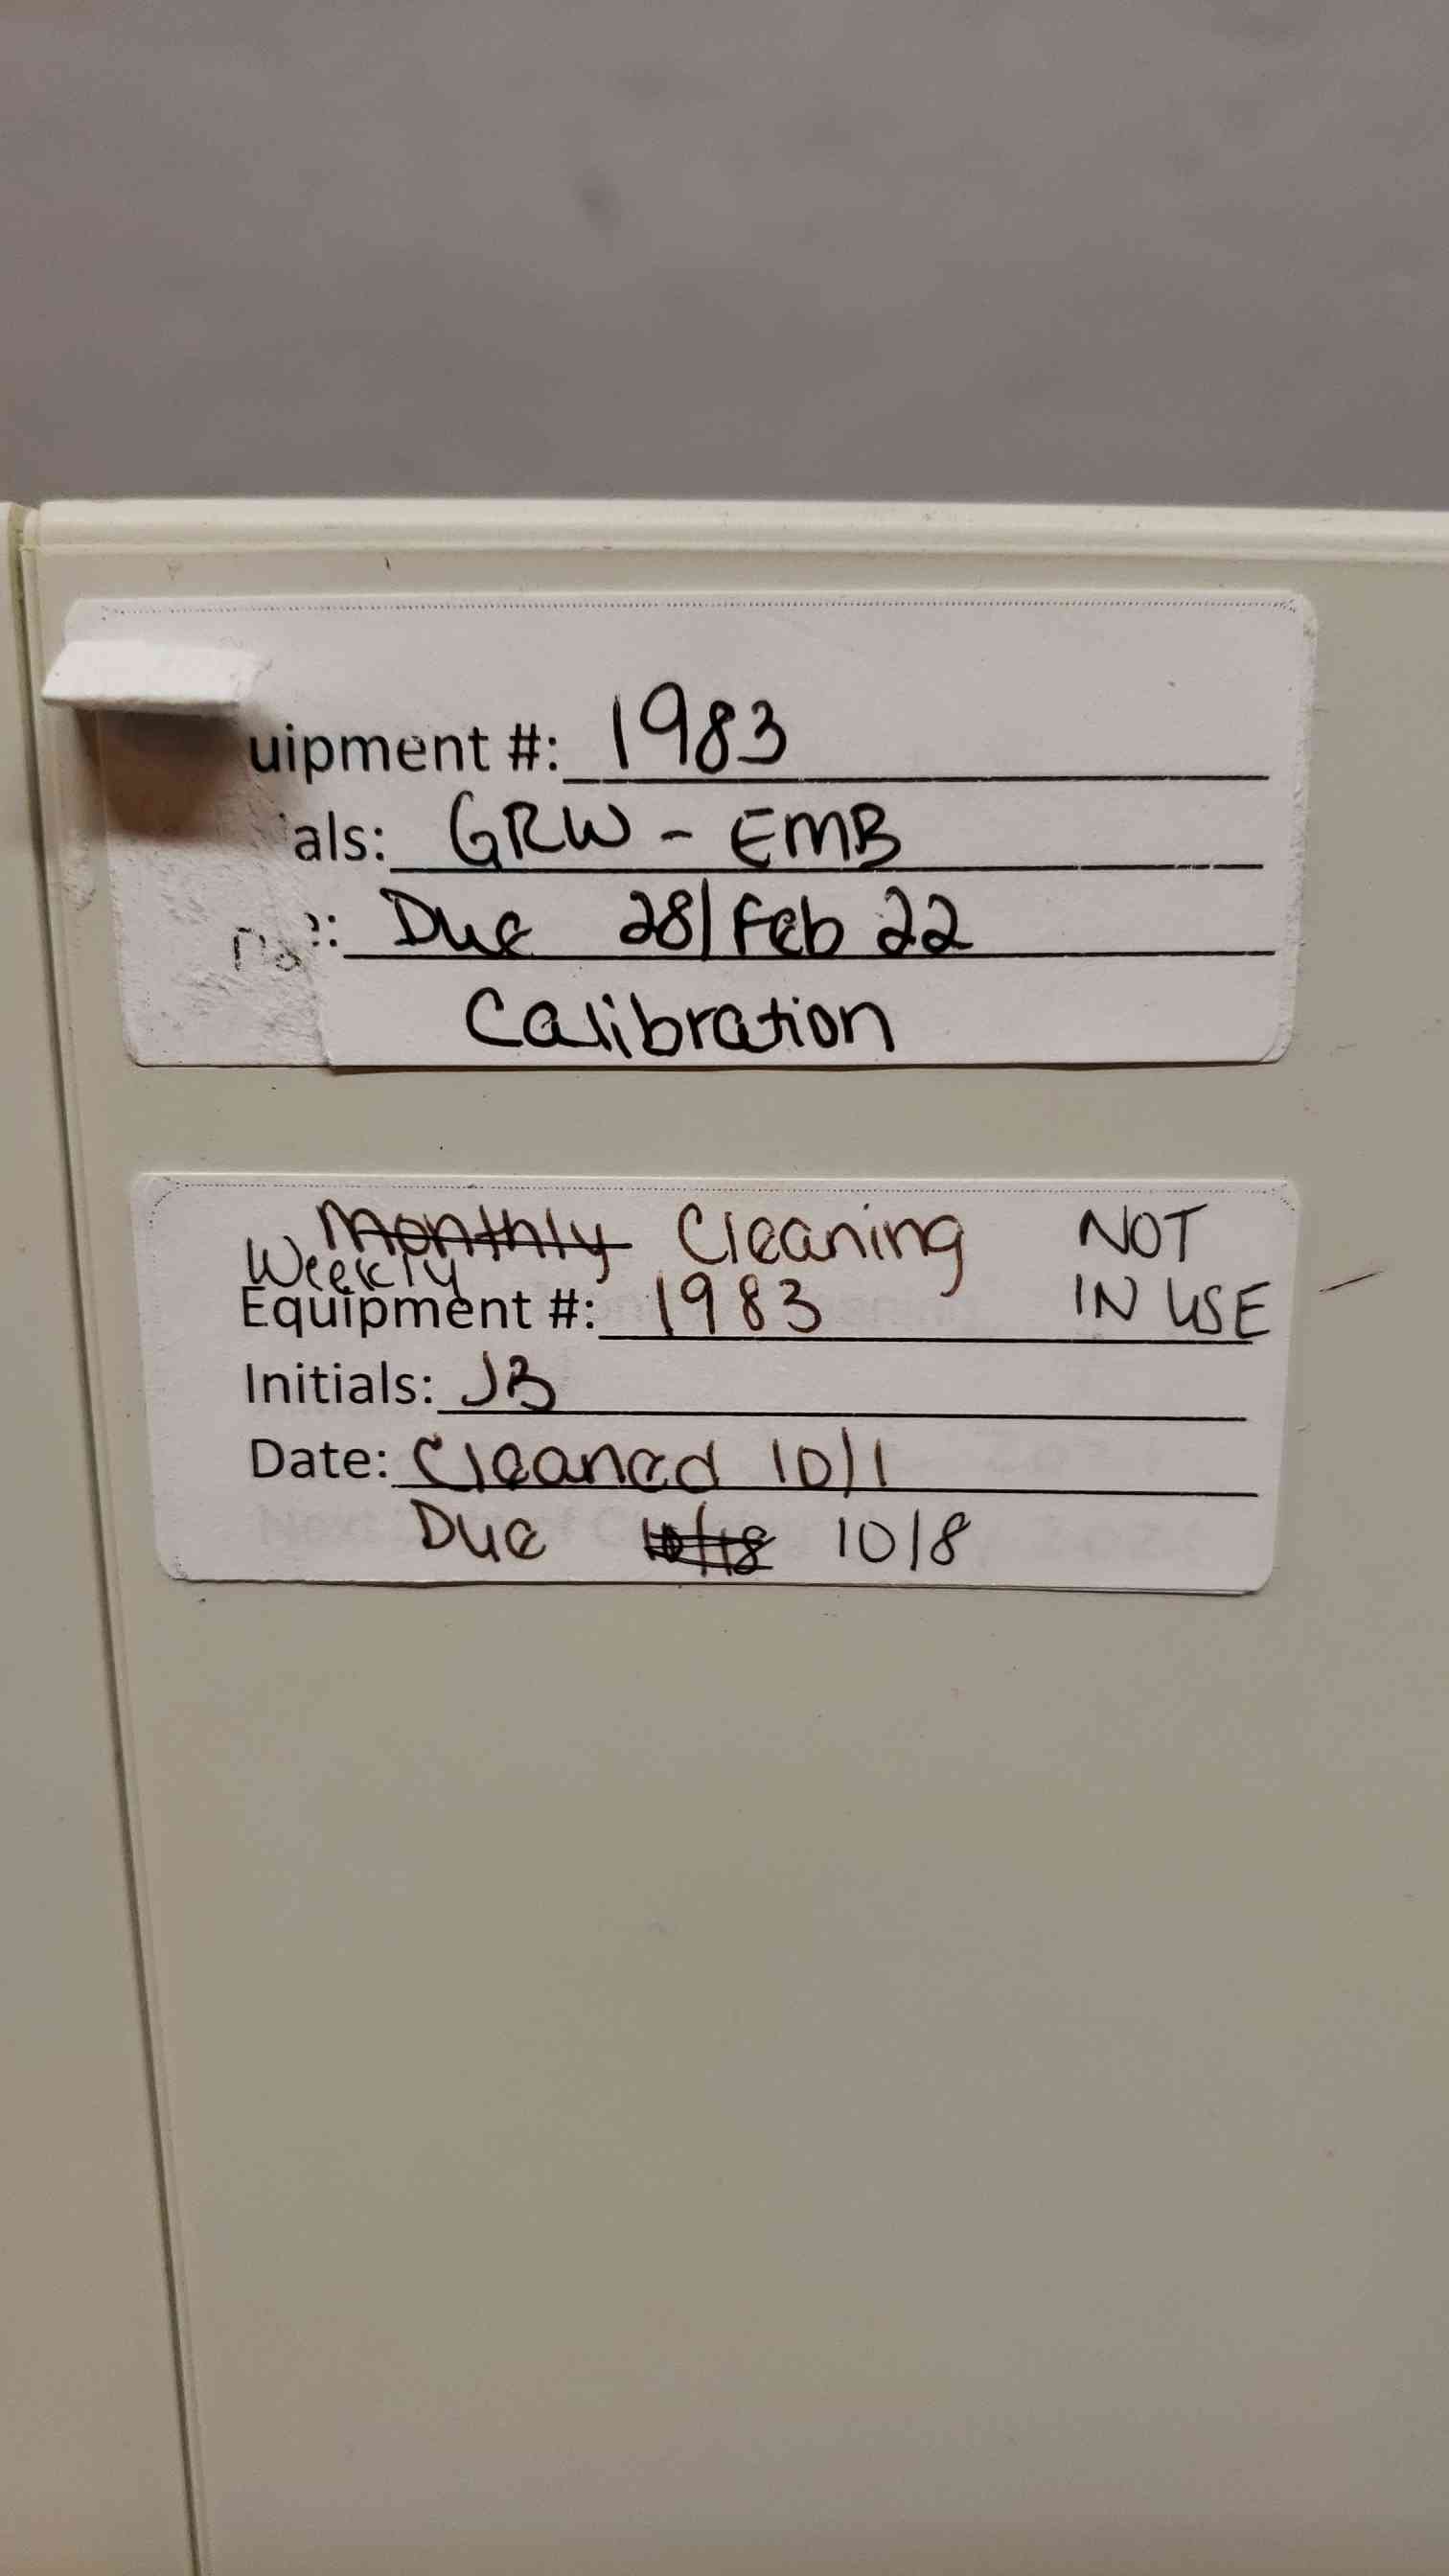 uipment #: 1983
als: GRW - EMB
: Due 28/Feb 22
Calibration
Monthly Cleaning NOT
Weekly IN USE
Equipment #: 1983
Initials: JB
Date: Cleaned 10/1
Due 10/18 10/8